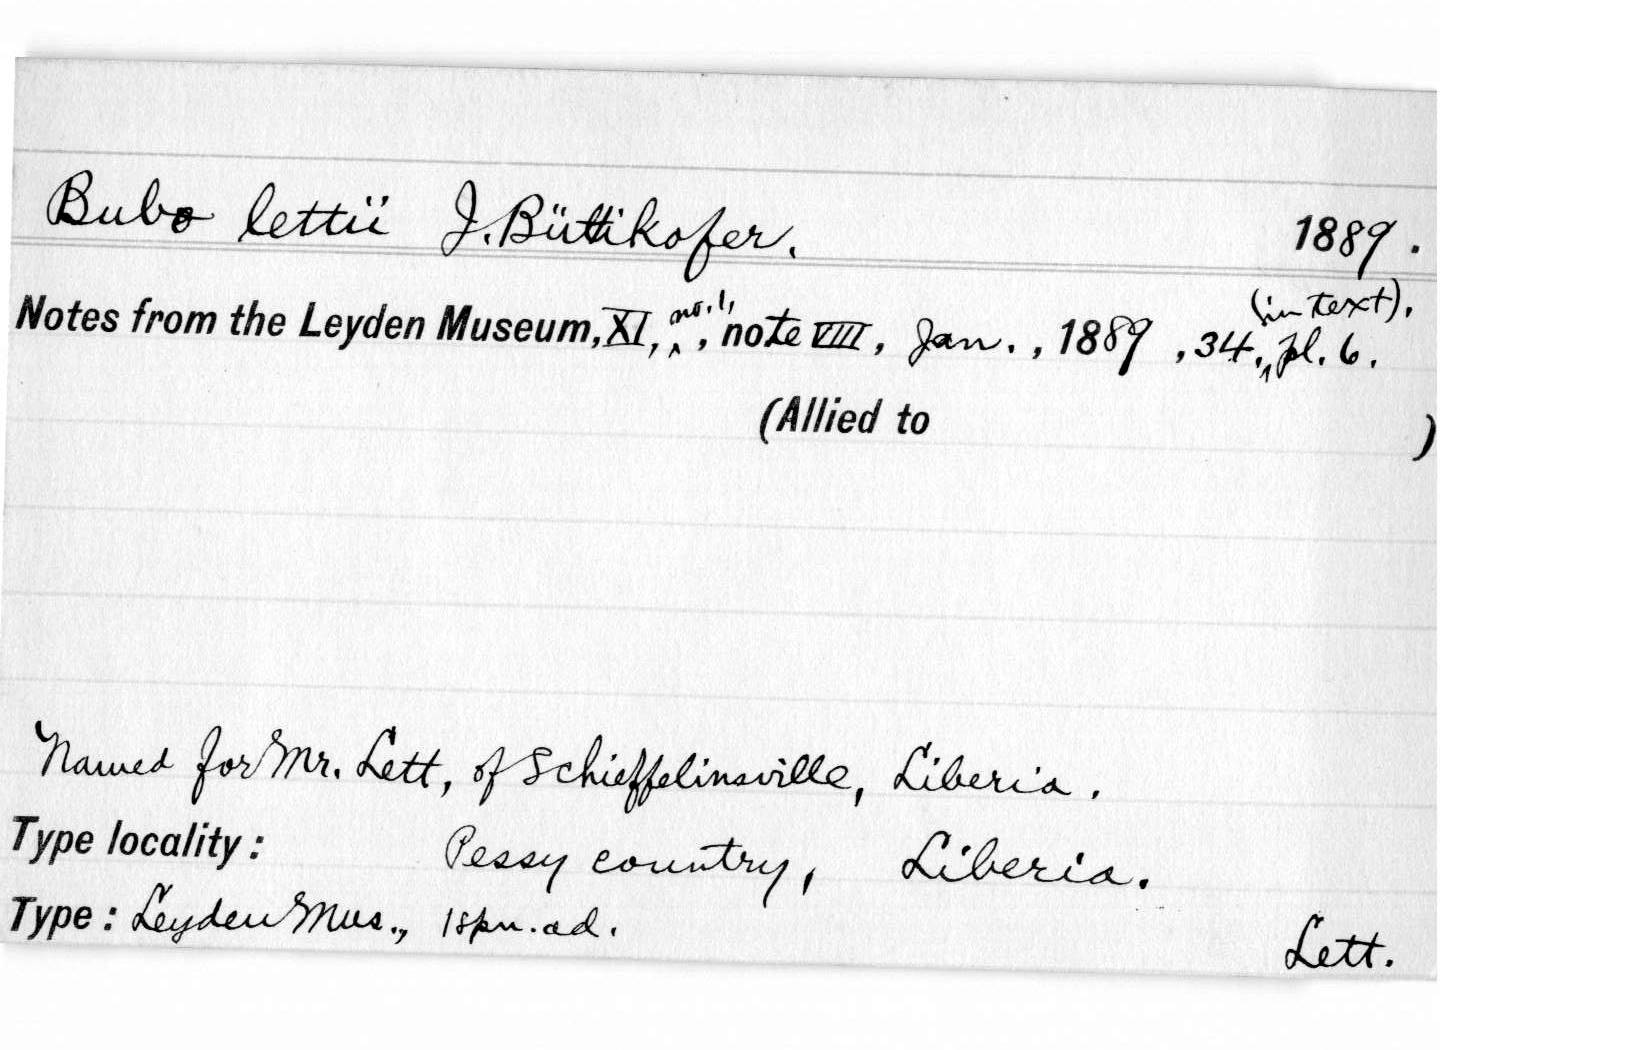 Bubo lettii J. Büttikofer. 1889.
Notes from the Leyden Museum, XI, no. 1, , note VIII, Jan., 1889, 34, (in text), pl. 6.
(Allied to )
Named for Mr. Lett, of Schieffelinsville, Liberia.
Type locality: Pessy country, Liberia.
Type: Leyden Mus., 1 spn. ad.
Lett.